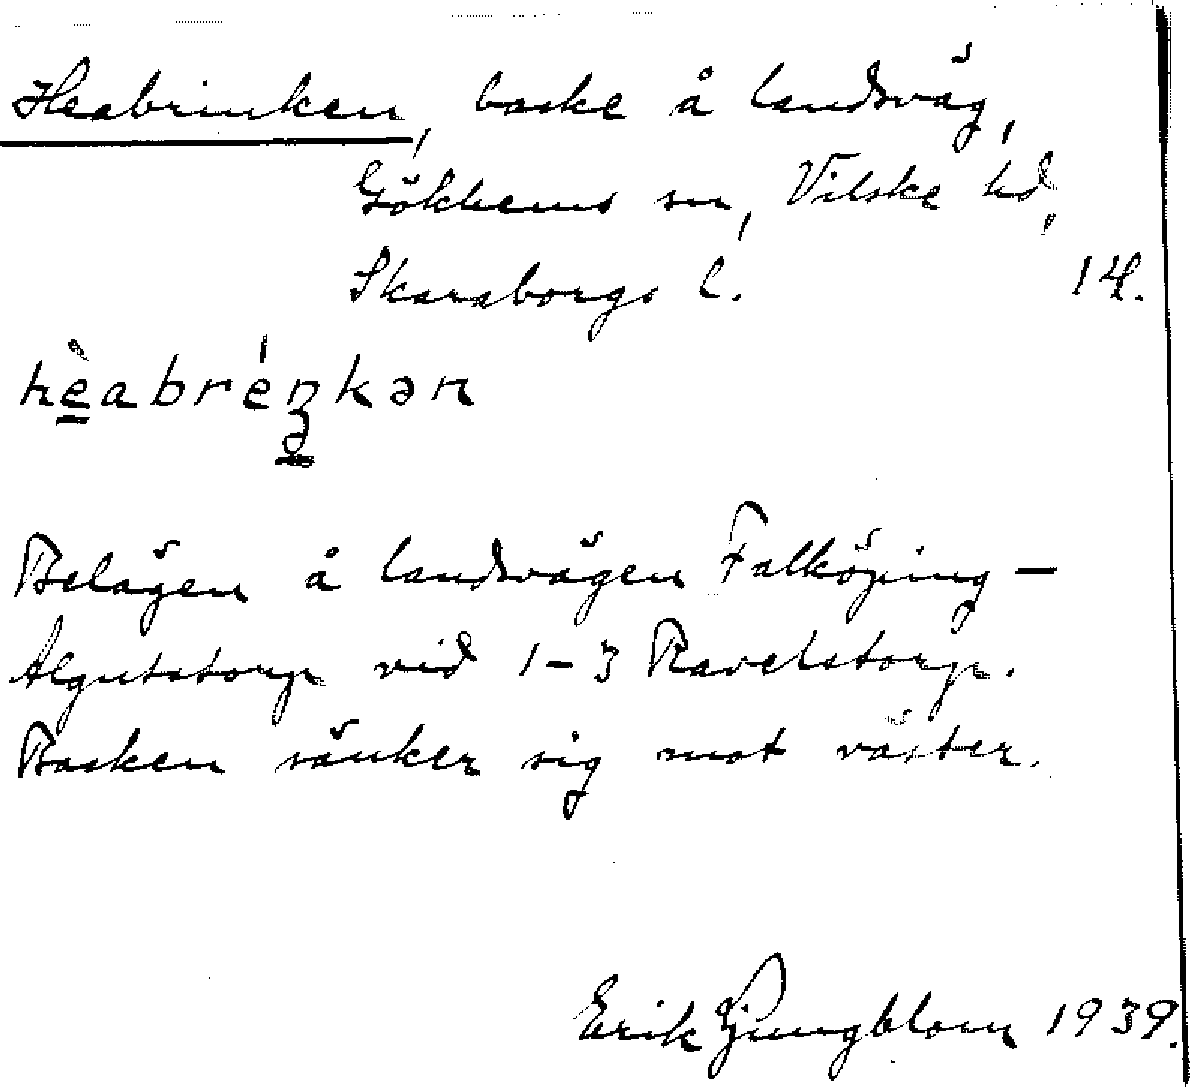 Heabrinken, backe å landsväg,
Gökhems sn, Vilske hd,
Skaraborgs l. 14.
hèabréŋkən
Belägen å landsvägen Falköping –
Algutstorp vid 1–3 Ravelstorp.
Backen sänker sig mot väster.
Erik Ljungblom 1939.